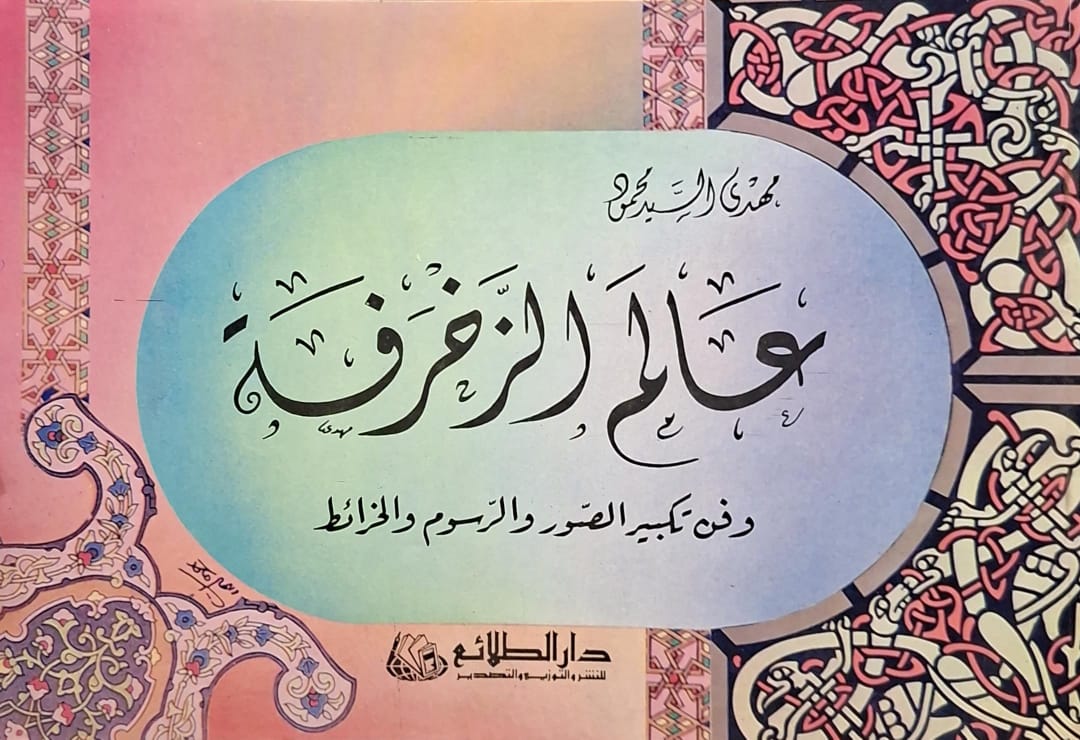 مهدى السيد محمود
عالم الزخرفة
مهدى
وفن تكبير الصور والرسوم والخرائط
دار الطلائع
للنشر والتوزيع والتصدير